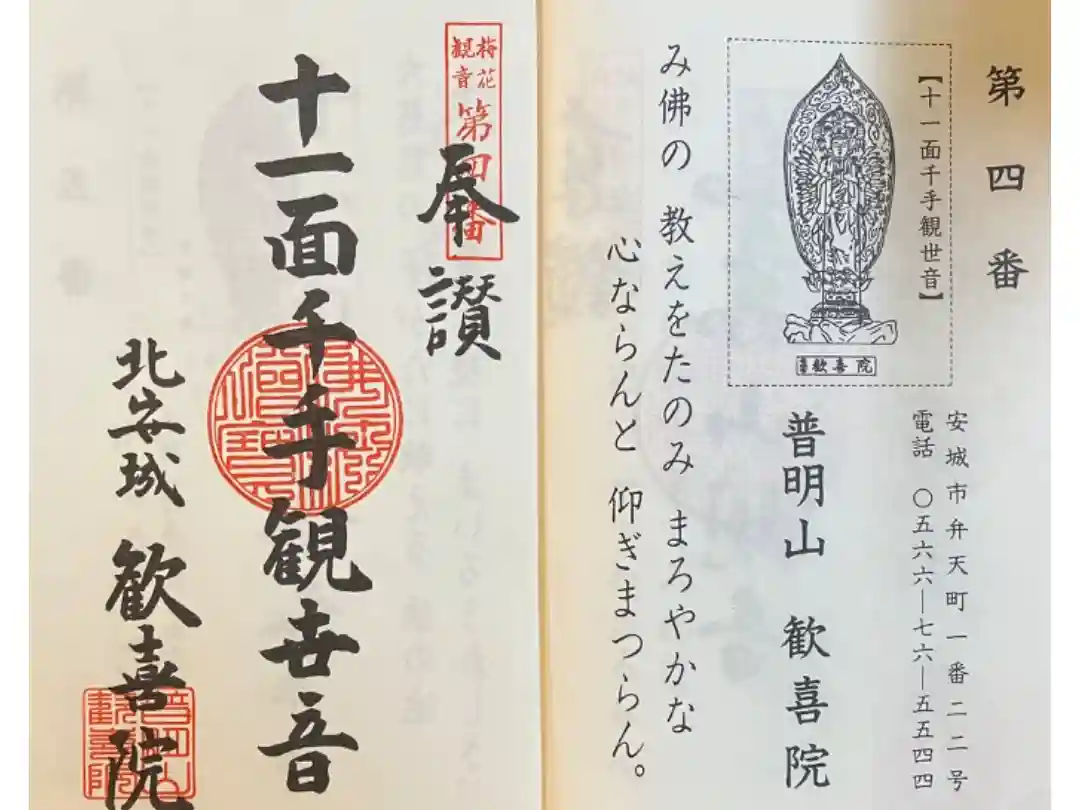 第四番
【十一面千手観世音】
歓喜院
安城市弁天町一番二二号
電話 〇五六六―七六―五五四四
普明山 歓喜院
み佛の 教えをたのみ まろやかな
心ならんと 仰ぎまつらん。
梅花
観音
第四番
奉讃
十一面千手観世音
佛法僧寳
北安城 歓喜院
普明山
歓喜院